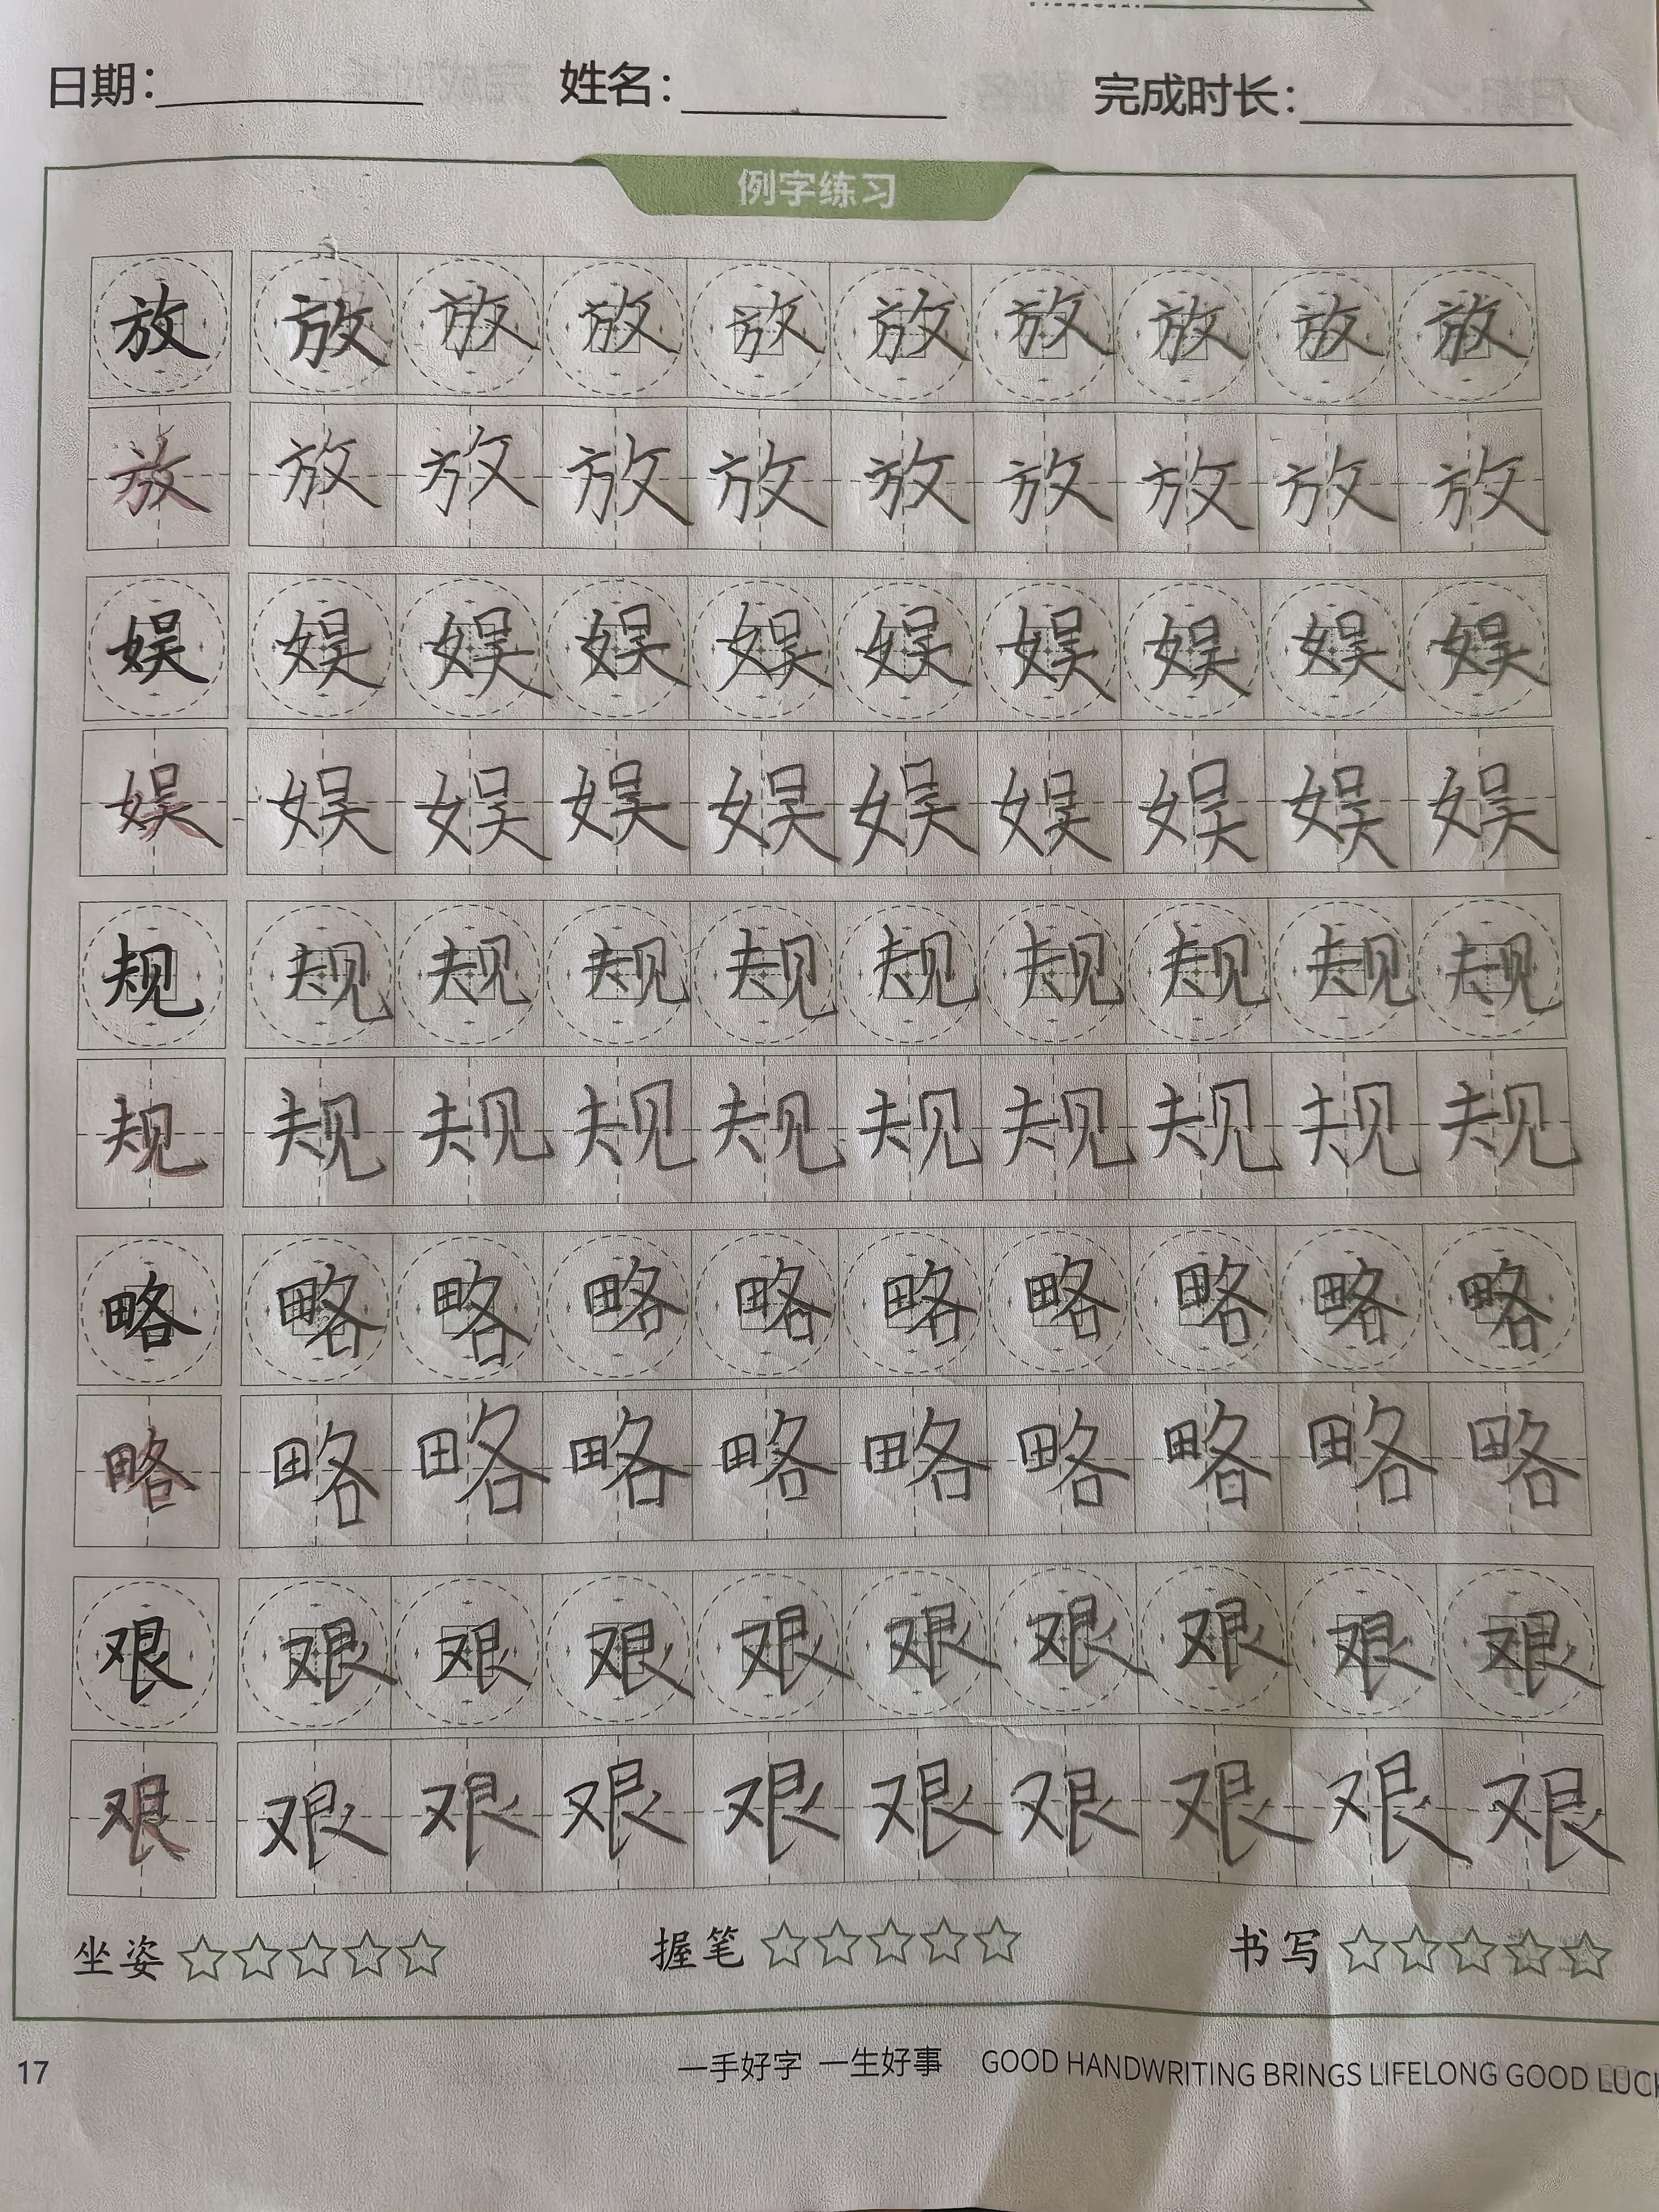 日期： 姓名： 完成时长：
例字练习
放 放 放 放 放 放 放 放 放 放
放 放 放 放 放 放 放 放 放 放
娱 娱 娱 娱 娱 娱 娱 娱 娱 娱
娱 娱 娱 娱 娱 娱 娱 娱 娱 娱
规 规 规 规 规 规 规 规 规 规
规 规 规 规 规 规 规 规 规 规
略 略 略 略 略 略 略 略 略 略
略 略 略 略 略 略 略 略 略 略
艰 艰 艰 艰 艰 艰 艰 艰 艰 艰
艰 艰 艰 艰 艰 艰 艰 艰 艰 艰
坐姿 ☆☆☆☆☆ 握笔 ☆☆☆☆☆ 书写 ☆☆☆☆☆
17 一手好字 一生好事 GOOD HANDWRITING BRINGS LIFELONG GOOD LUCK